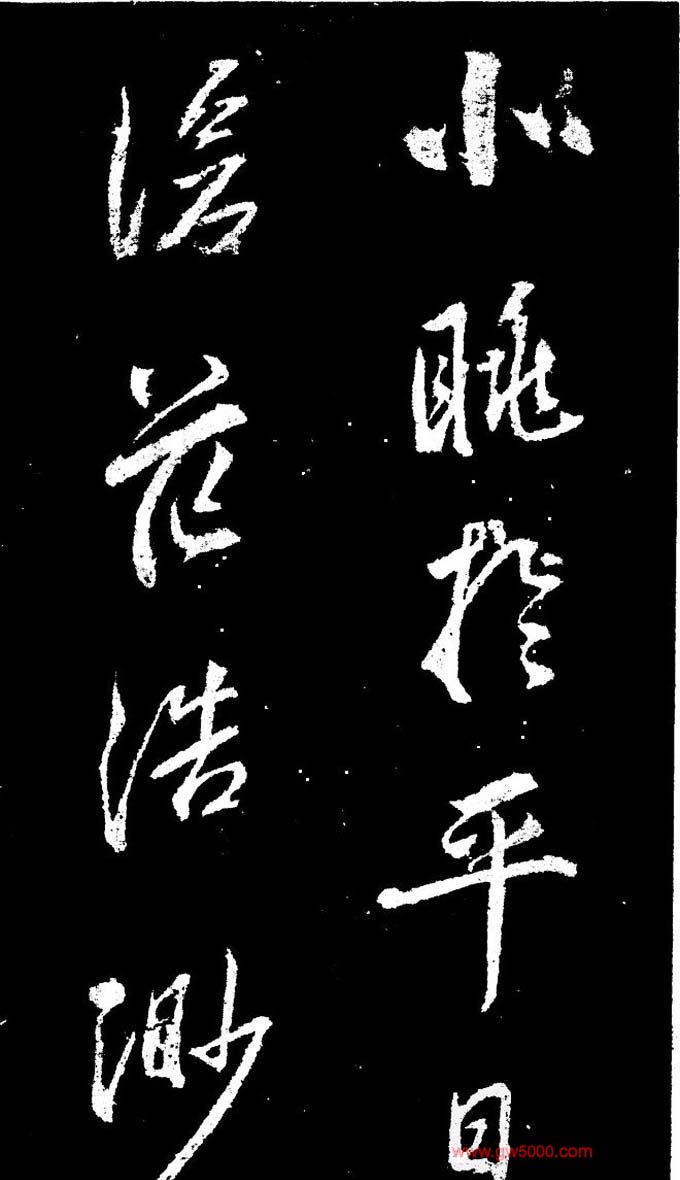 小眺於平日
滄茫浩渺
www.gw5000.com